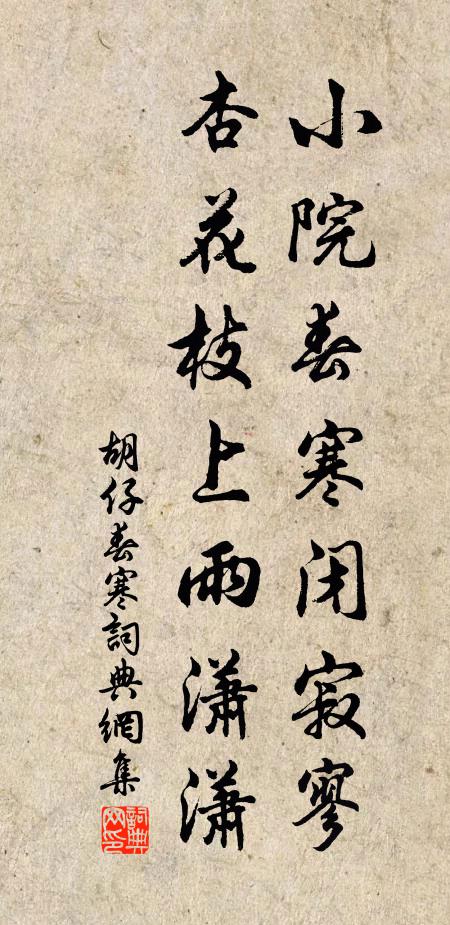 小院春寒闭寂寥
杏花枝上雨潇潇
胡仔春寒詞典網集
詞典网印